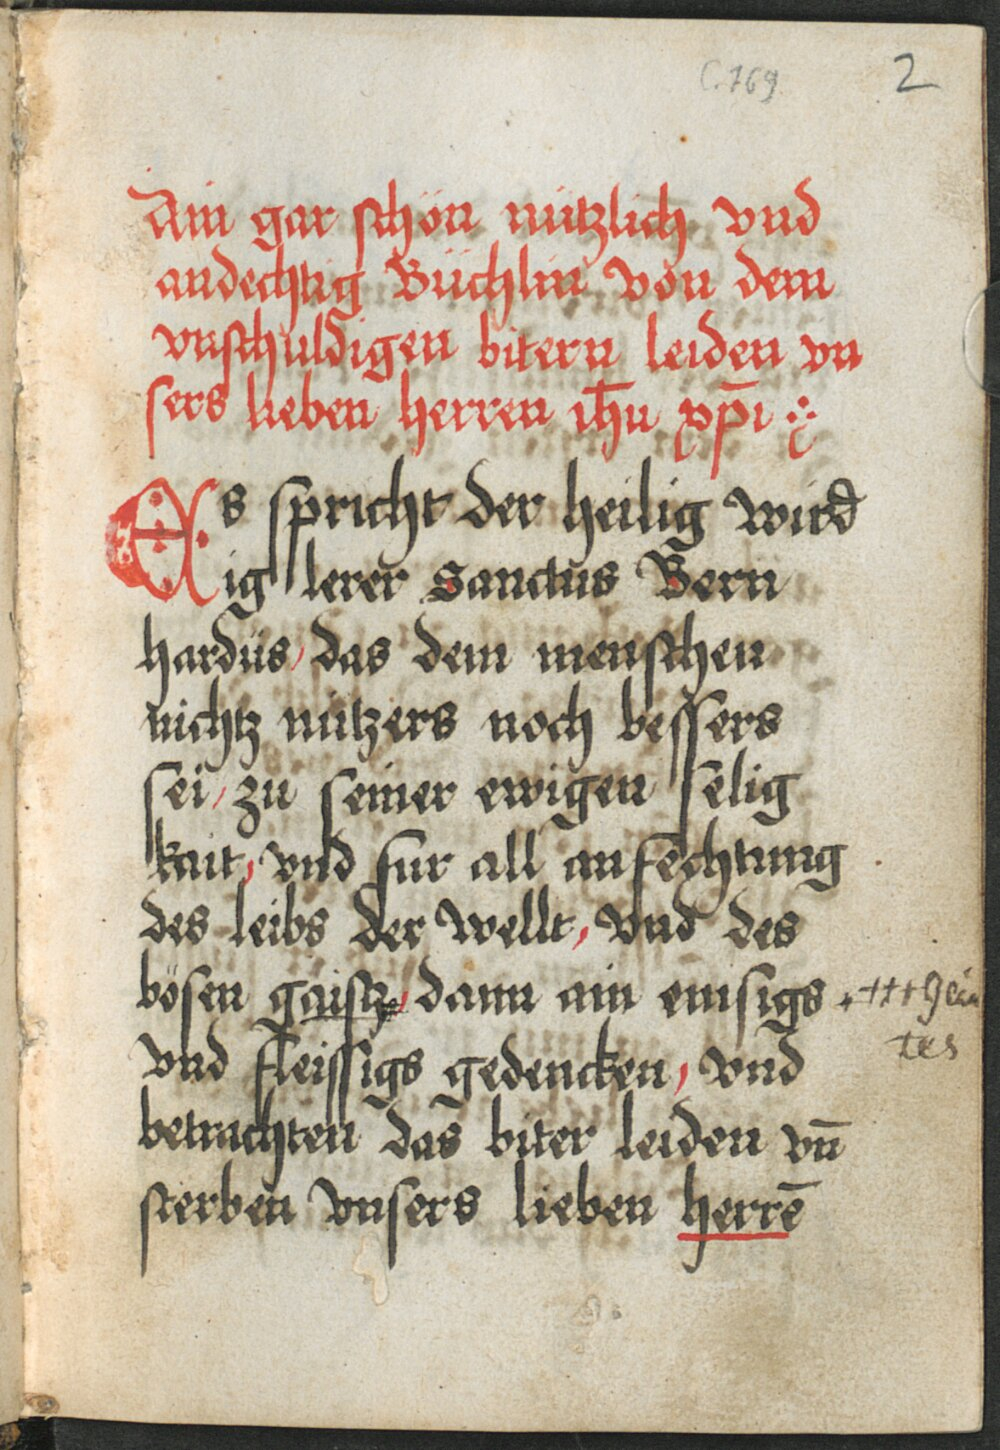 C. 769
2
Ain gar schön nützlich vnd
andechtig Büchlin von dem
vnschuldigen bitern leiden vn
sers lieben herren ih̄u xp̄i
Es spricht der heilig wird
ig lerer Sanctus Bern
hardus / das dem menschen
nichtz nützers noch bessers
sei / zu seiner ewigen selig
kait / vnd fur all anfechtung
des leibs der wellt / vnd des
bösen gaistz / dann ain emsigs
vnd fleissigs gedencken / vnd
betrachten das biter leiden vn̄
sterben vnsers lieben herrē
tes